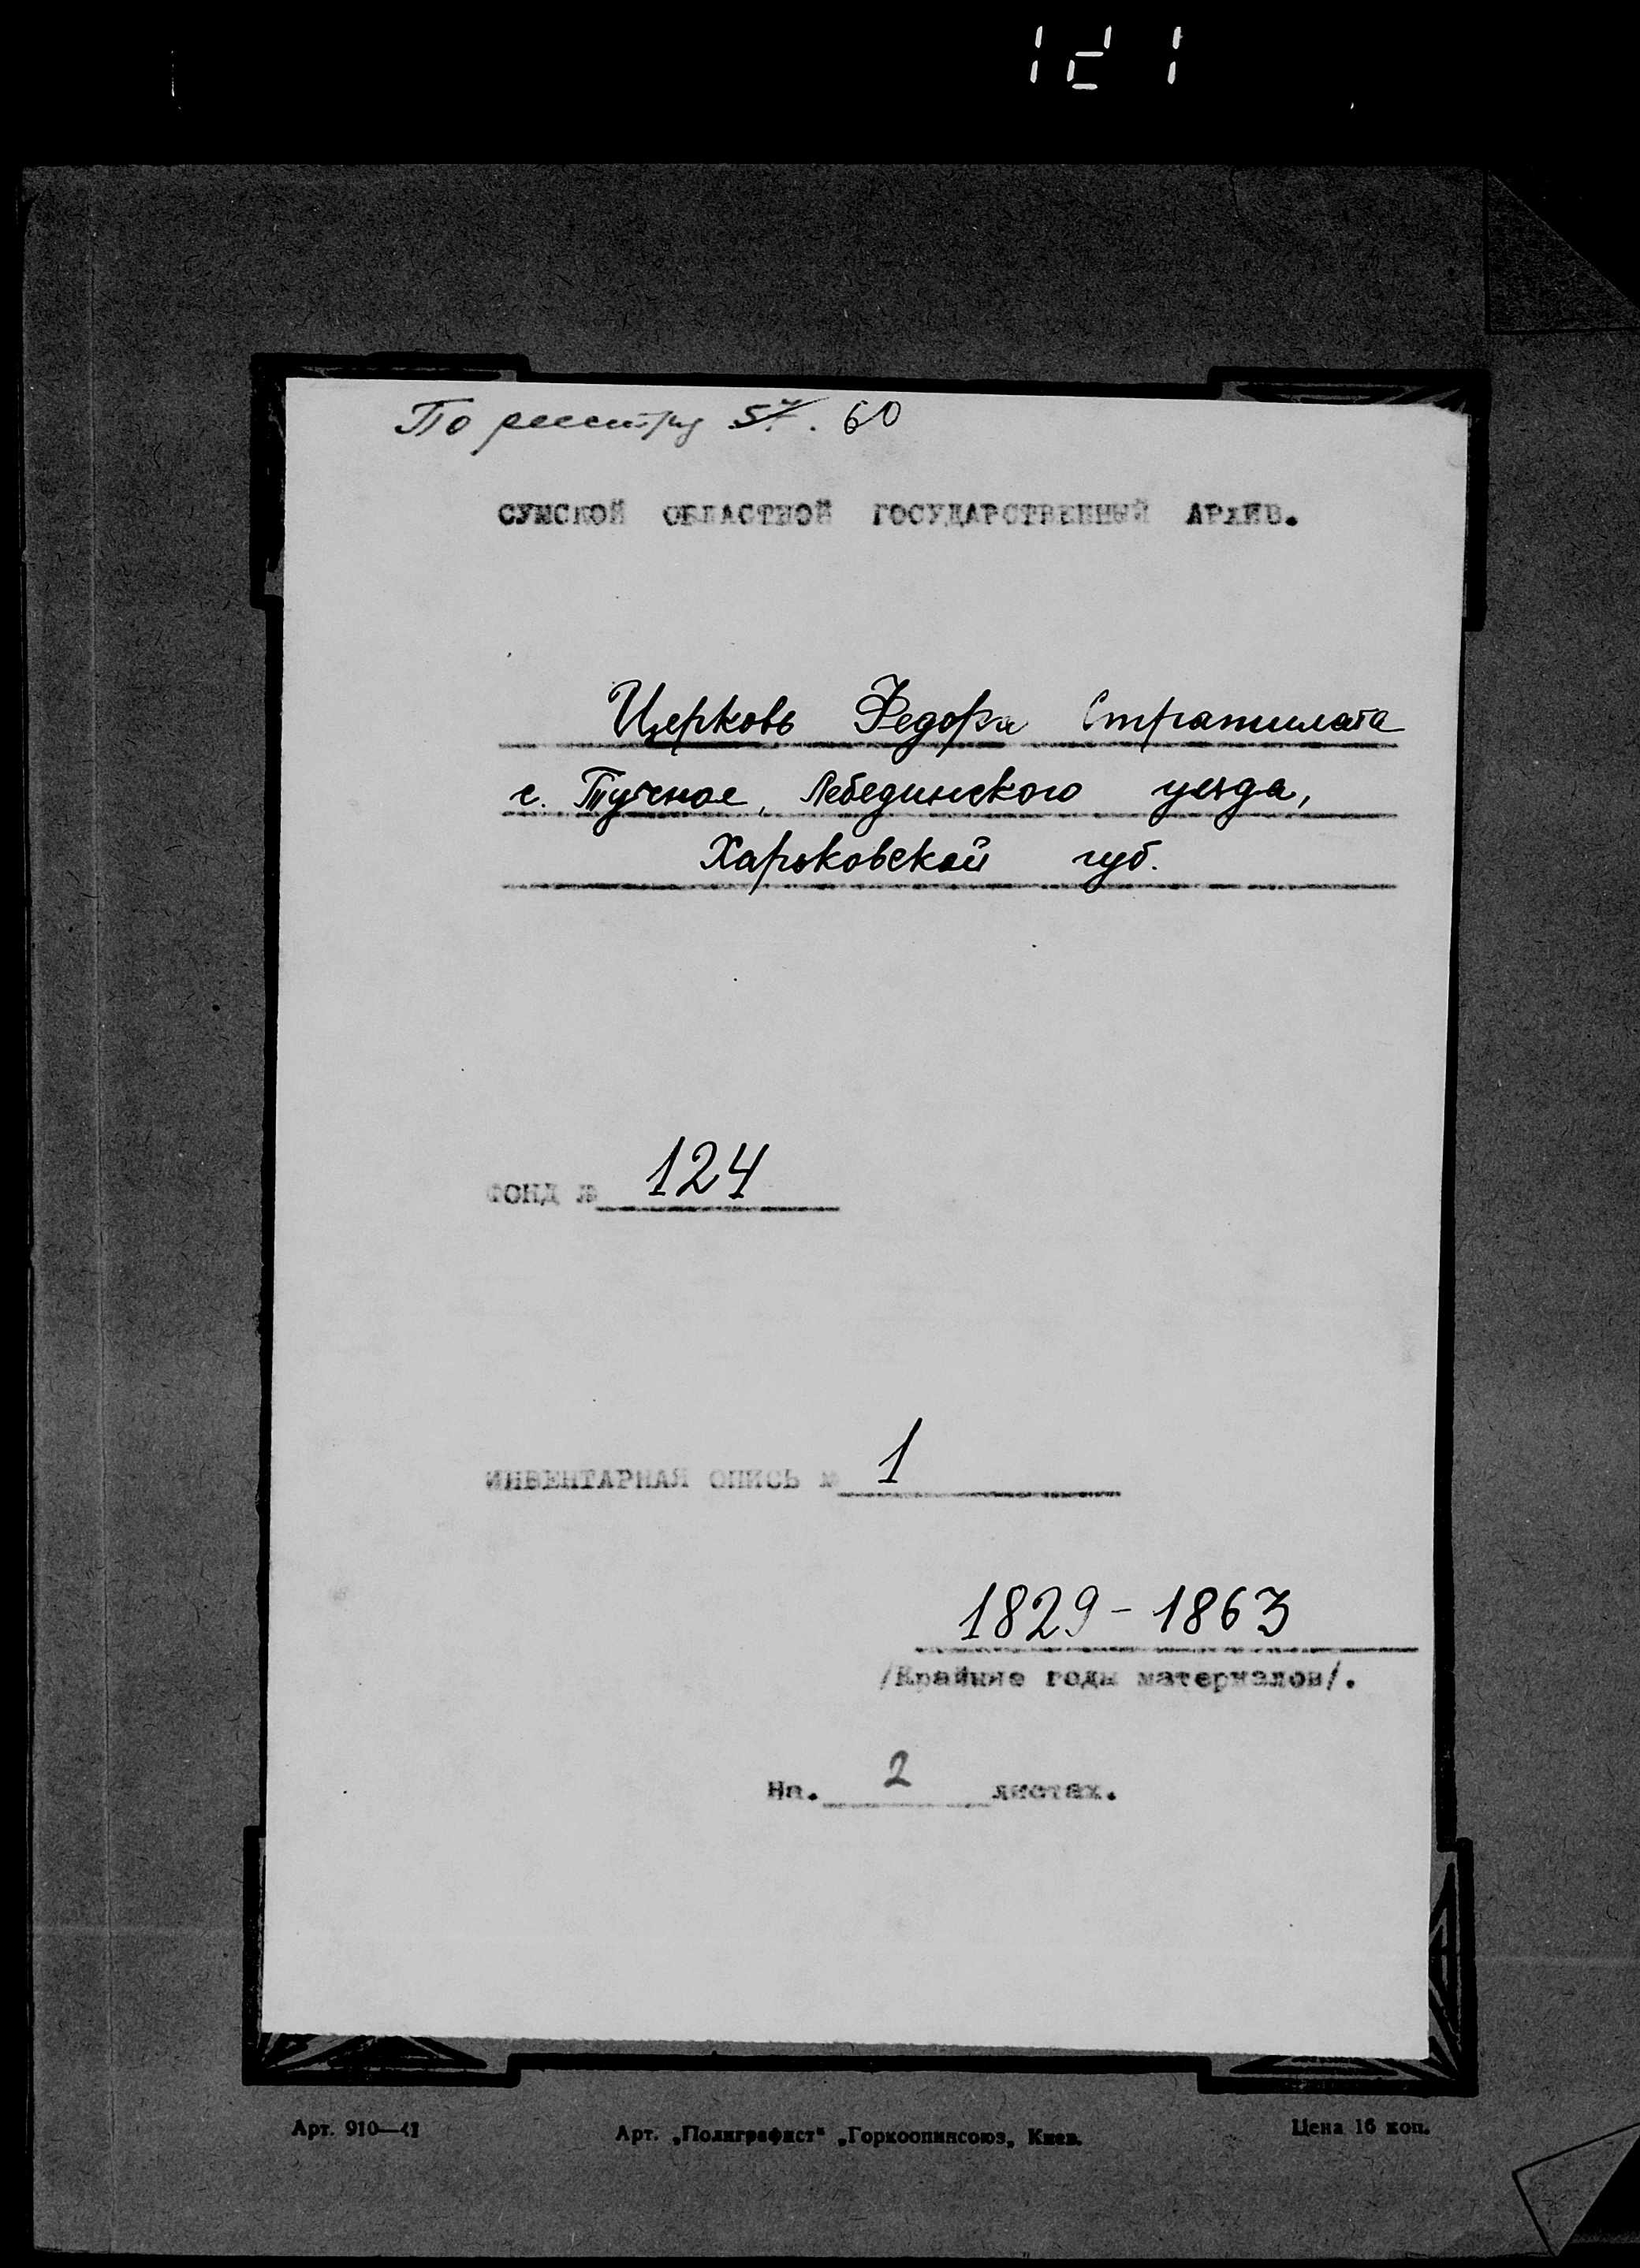 121
По реестру 57. 60
СУМСКОЙ ОБЛАСТНОЙ ГОСУДАРСТВЕННЫЙ АРХИВ.
Церковь Федора Стратилата
с. Тучное, Лебединского уезда,
Харьковской губ.
ФОНД № 124
ИНВЕНТАРНАЯ ОПИСЬ № 1
1829-1863
/Крайние годы материалов/.
На. 2 листах.
Арт. 910—41 Арт. „Полиграфист“ „Горкоопинсоюз„ Киев. Цена 16 коп.